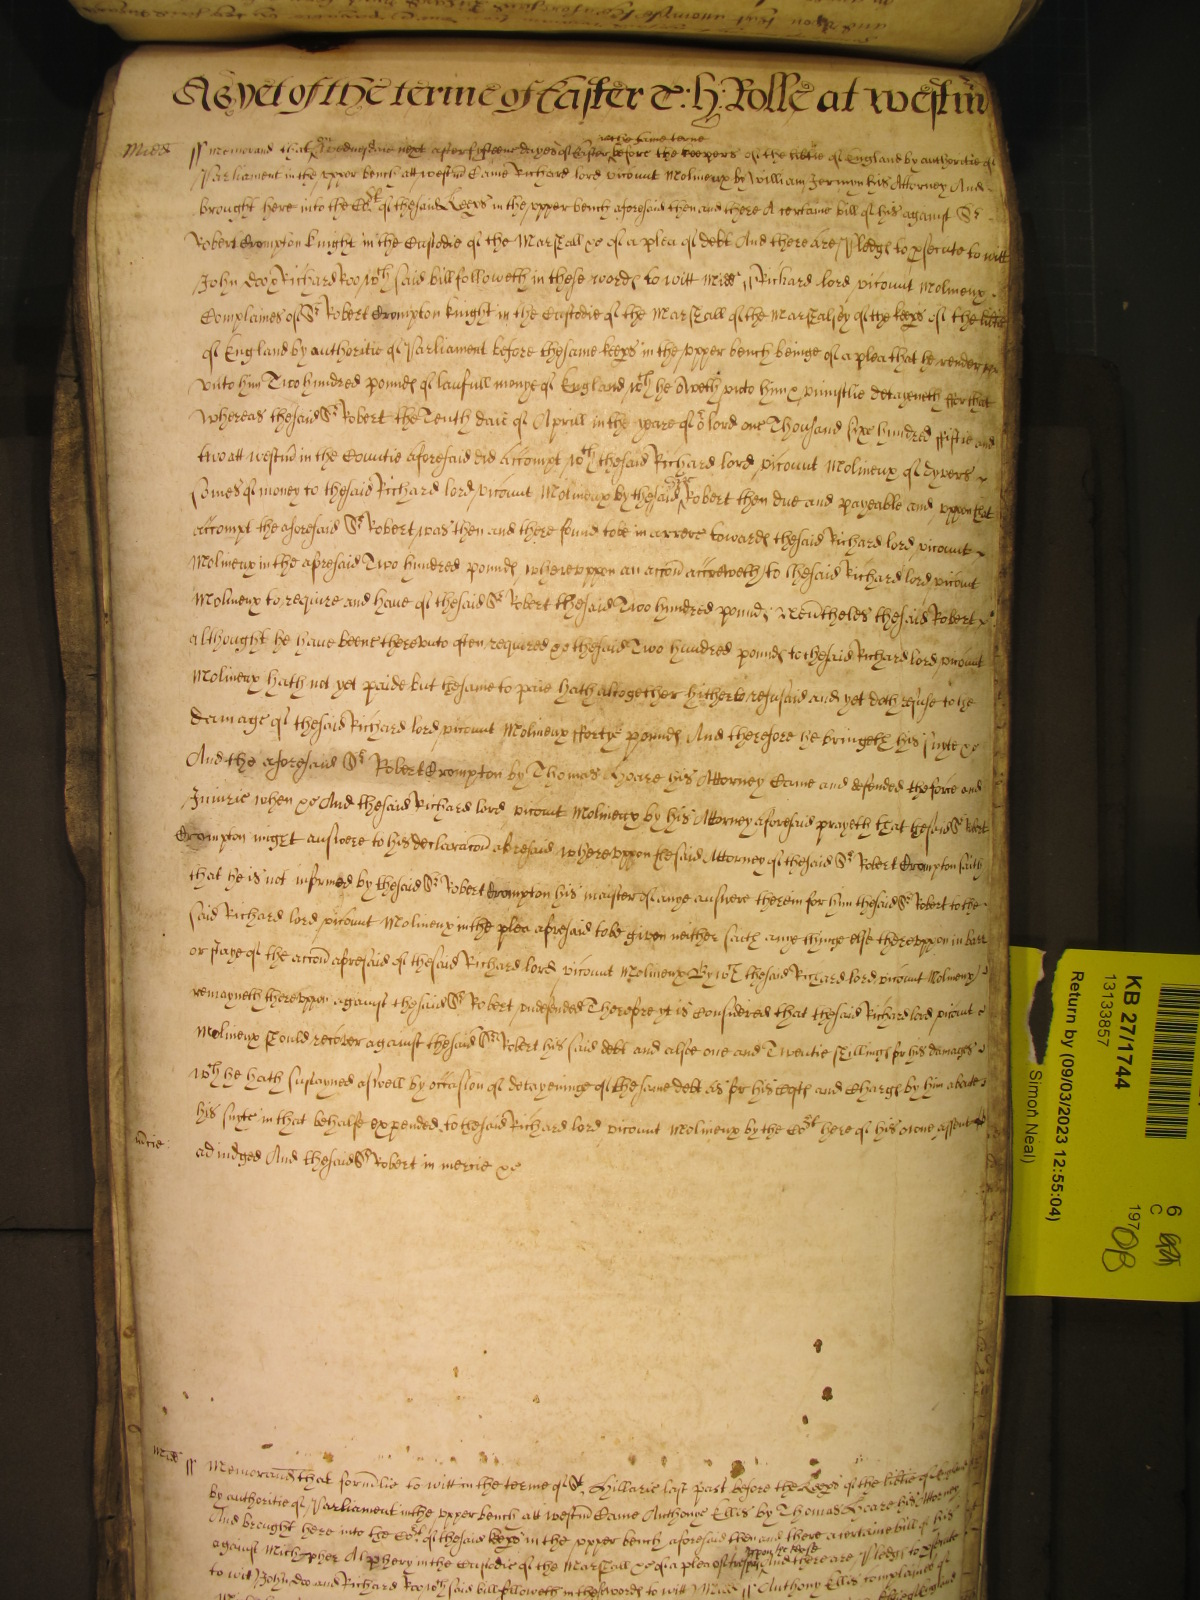 As yet of the terme of Easter T: H: Rolle at westm
Midd ss Memorand that on wednesdaie next after fifteene dayes of Easter in this same terme before the keepers of the libtie of England by authoritie of
Parliament in the vpper bench att westm Came Richard lord vicount Molineux by William Jermyn his Attorney And
brought here into the Cort of the said Keeps in the vpper bench aforesaid then and there A certaine bill of his against Sr
Robert Crompton knight in the Custodie of the Marshall &c of a plea of debt And there are Pledg to psecute to witt
John Doo & Richard Roo wch said bill followeth in these words to witt Midd ss Richard lord vicount Molineux
Complaines of Sr Robert Crompton knight in the Custodie of the Marshall of the Marshalsey of the keeps of the libtie
of England by authoritie of Parliament before the same keeps in the vpper bench beinge of a plea that he render
vnto him Two hundred pounds of laufull monye of England wch he oweth vnto him & vniustlie detayneth ffor that
Whereas the said Sr Robert the Tenth daie of Aprill in the yeare of or lord one Thousand sixe hundred ffiftie and
two att westm in the Countie aforesaid did accompt wth the said Richard lord vicount Molineux of dyvers
somes of money to the said Richard lord vicount Molineux by the said Sr Robert then due and payeable and vppon that
accompt the aforesaid Sr Robert was then and there found to be in arrere towards the said Richard lord vicount
Molineux in the aforesaid Two hundred pounds wherevppon an accon accreweth to the said Richard lord vicount
Molineux to require and have of the said Sr Robert the said Two hundred pounds Neutheles the said Robert
althought he have beene therevnto often required &c the said Two hundred pounds to the said Richard lord vicount
Molineux hath not yet paide but the same to paie hath altogether hitherto refused and yet doth refuse to the
damage of the said Richard lord vicount Molineux ffortye pounds And therefore he bringeth his suyte &c
And the aforesaid Sr Robert Crompton by Thomas Hoare his Attorney Came and defended the force and
Iniurie when &c And the said Richard lord vicount Molineux by his Attorney aforesaid prayeth that the said Sr Robert
Crompton might answere to his declaracon aforesaid wherevppon the said Attorney of the said Sr Robert Crompton saith
that he is not informed by the said Sr Robert Crompton his maister of anye answere therein for him the said Sr Robert to the
said Richard lord vicount Molineux in the plea aforesaid to be given neither saith anye thinge else therevppon in barr
or staye of the accon aforesaid of the said Richard lord vicount Molineux By wch the said Richard lord vicount Molineux
remayneth therevppon against the said Sr Robert vndefended Therefore yt is Considered that the said Richard lord vicount
Molineux should recover against the said Sr Robert his said debt and alsoe one and Twentie shillings for his damages
wch he hath sustayned aswell by occasion of detayeninge of the same debt as for his costs and Charges by him aboute
his suyte in that behalfe expended to the said Richard lord vicount Molineux by the Cort here of his owne assent
mcie: adiudged And the said Sr Robert in mercie &c
Midd ss Memorand that formlie to witt in the terme of St Hillarie last past before the Keeps of the libtie of England
by authoritie of Parliament in the vpper bench att westm Came Anthonye Ellis by Thomas Hoare his Attorney
And brought here into the Cort of the said keeps in the vpper bench aforesaid then and there a certaine bill of his
against Alphery in the custodie of the Marshall &c of a plea of trespas vpon the Case And there are Pledgs to psecute
to witt John Doo and Richard Roo wch said bill followeth in these words to witt Midd ss Anthony Ellis complaines of
KB 27/1744
13133857
Return by (09/03/2023 12:55:04)
Simon Neal)
6
C
197